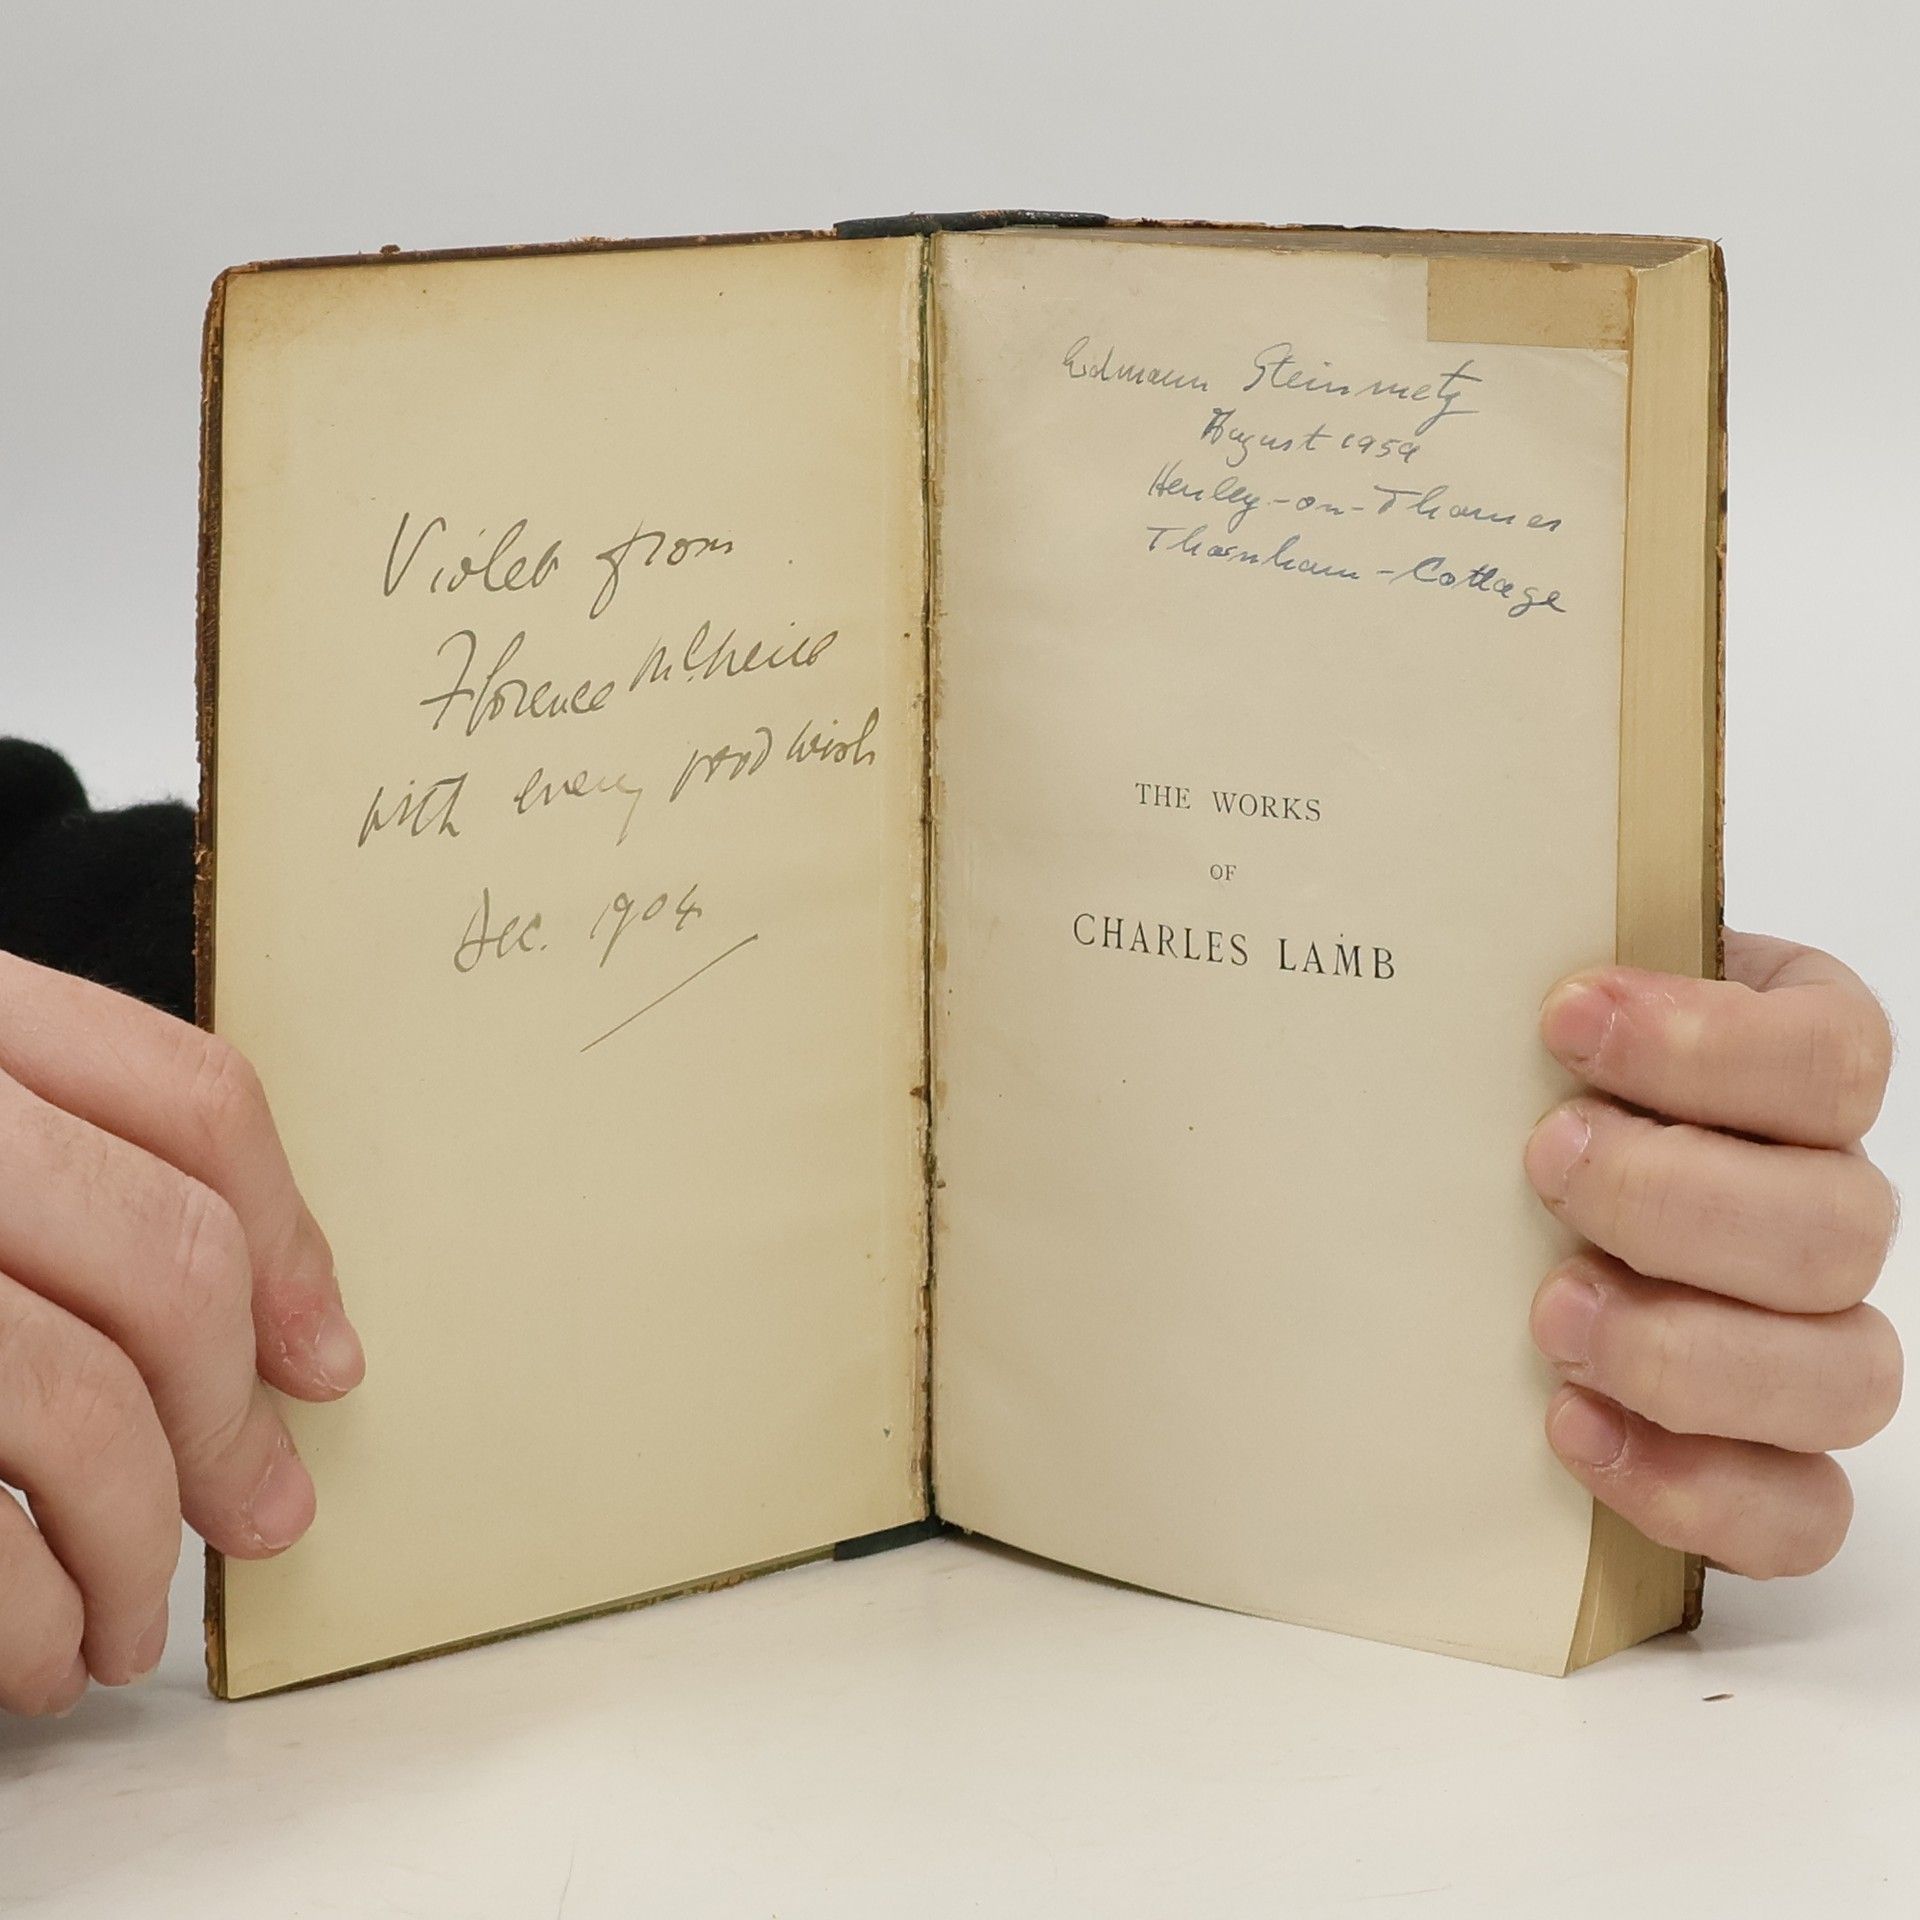 Violet from
Florence McNeill
with every good wish
Dec. 1904
Edmann Steinmetz
August 1959
Henley-on-Thames
Thornham-Cottage
THE WORKS
OF
CHARLES LAMB